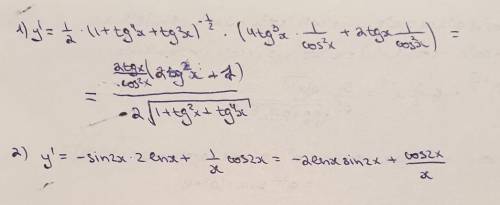 1) y' = 1/2 · (1+tg⁴x+tg²x)^(-1/2) · (4tg³x · 1/cos²x + 2tgx 1/cos²x) =
= (2tgx/cos²x (2tg²x + 1)) / (2√(1+tg²x+tg⁴x))
2) y' = -sin2x · 2lnx + 1/x cos2x = -2lnx sin2x + cos2x/x